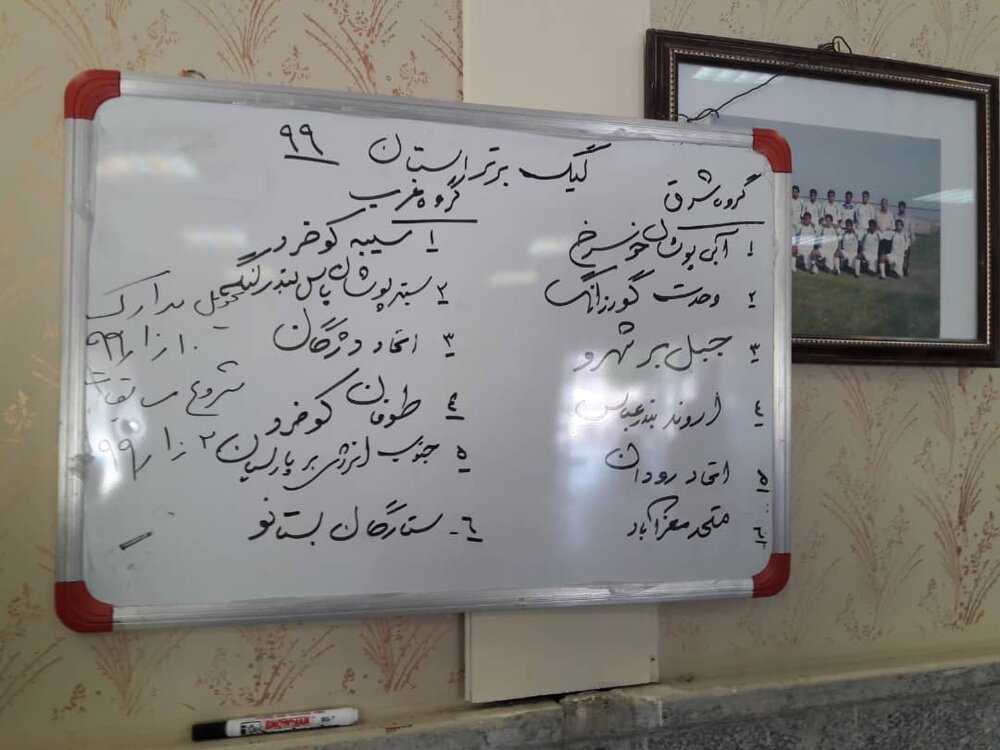 لیگ برتر استان ۹۹
گروه شرق
۱ آبی پوشان خونسرخ
۲ وحدت گورزانگ
۳ جبل بر شهرو
٤ اروند بندرعباس
۵ اتحاد رودان
٦ متحد معزآباد
گروه غرب
۱ سیبه کوخرد
۲ سبزپوشان پاس بندرلنگه
۳ اتحاد دژگان
٤ طوفان کوخرد
۵ جنوب انرژی بر پارسیان
٦- ستارگان بستانو
تحویل مدارک
شروع مسابقات
SNOWMAN